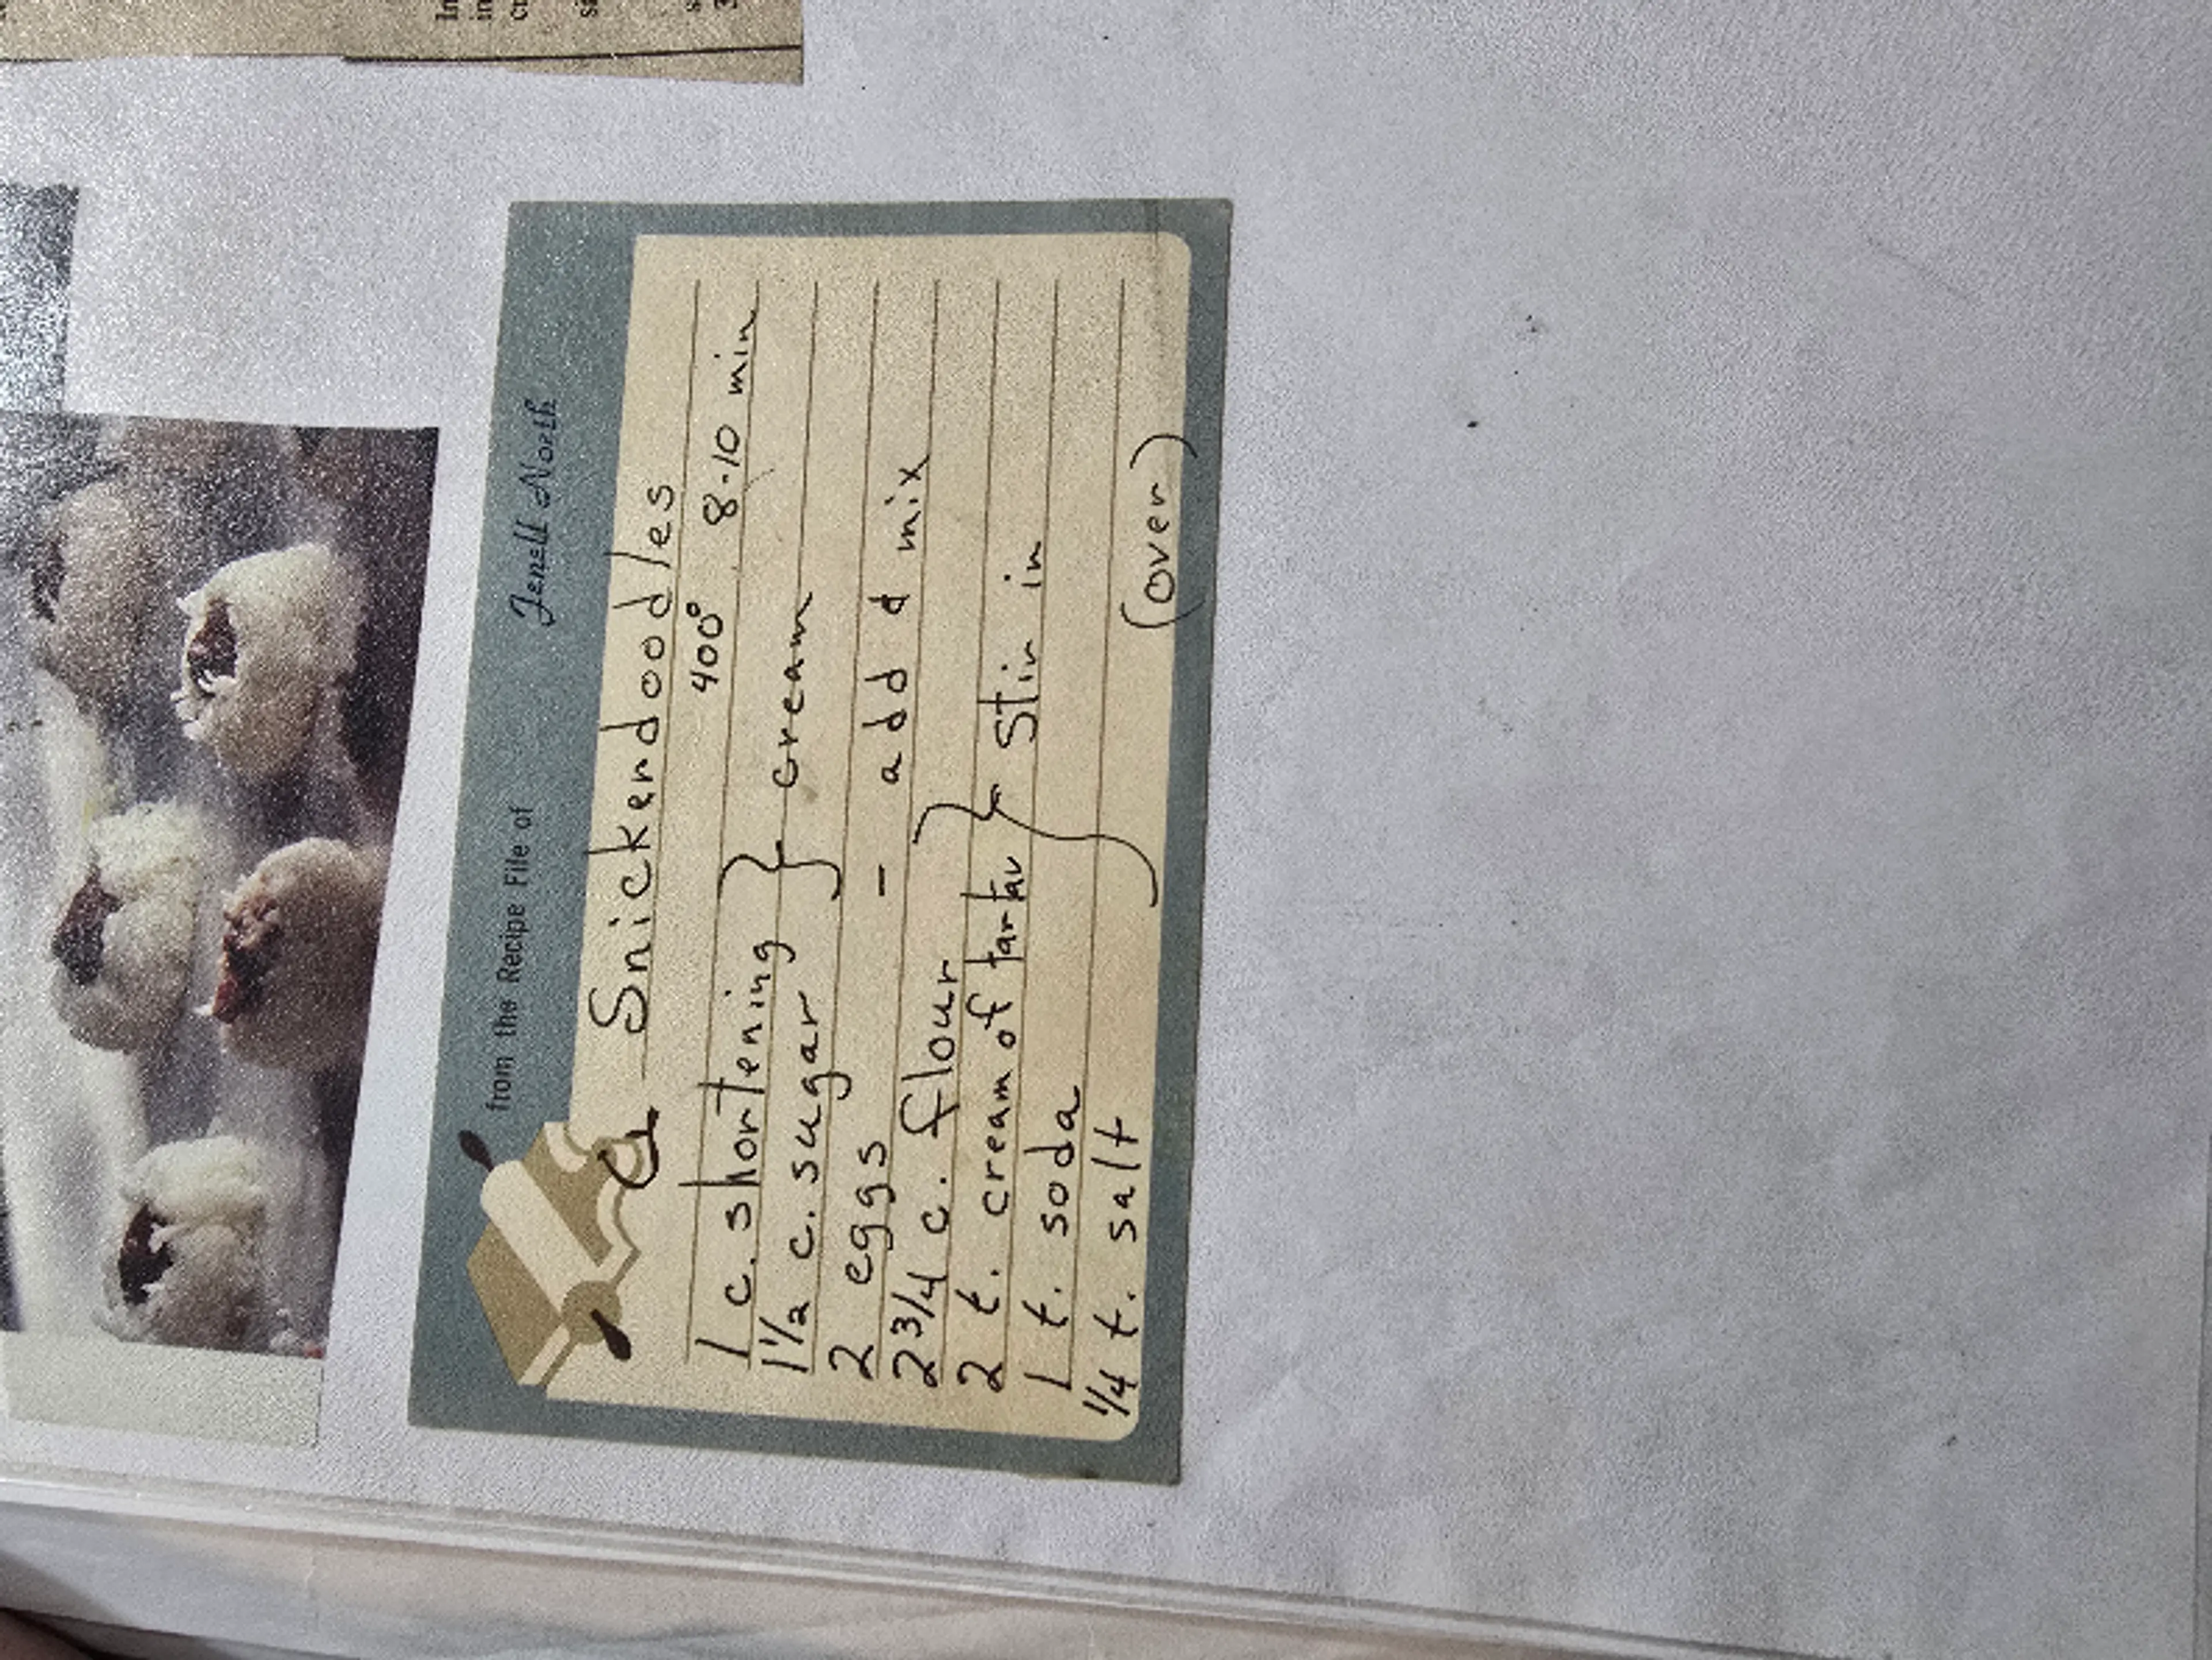 from the Recipe File of Jenell North
Snickerdoodles
400° 8-10 min
1 c. shortening } cream
1 1/2 c. sugar
2 eggs - add & mix
2 3/4 c. flour
2 t. cream of tartar } stir in
1 t. soda
1/4 t. salt
(over)